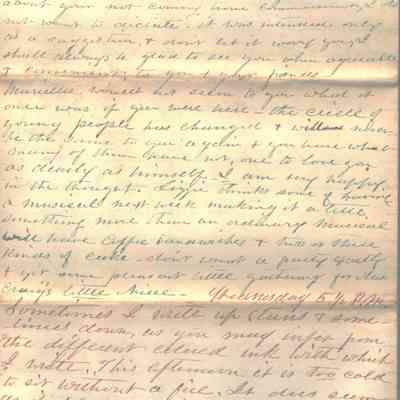 about your not coming home commencement. I do
not want to dictate. it was intended only
as a suggestion, & dont let it worry you. I
shall always be glad to see you when agreeable
& convenient to you & your
Marcellus would not seem to you what it
once was if you were here - the circle of
young people has changed & will never
be the same to you again, & you have what
many of them have not, one to love you
as dearly as himself. I am very happy
in the thought. Lizzie thinks some of having
a musical next week making it a little
something more than an ordinary musical
will have coffee sandwiches & two or three
kinds of cake - don't want a party exactly
& yet some pleasant little gathering for Miss
Craig's little Niece - Wednesday 5 1/2 P.M.
Sometimes I write up stairs & some
times down, as you may infer from
the different colored ink with which
I write. This afternoon it is too cold
to sit without a fire. It does seem